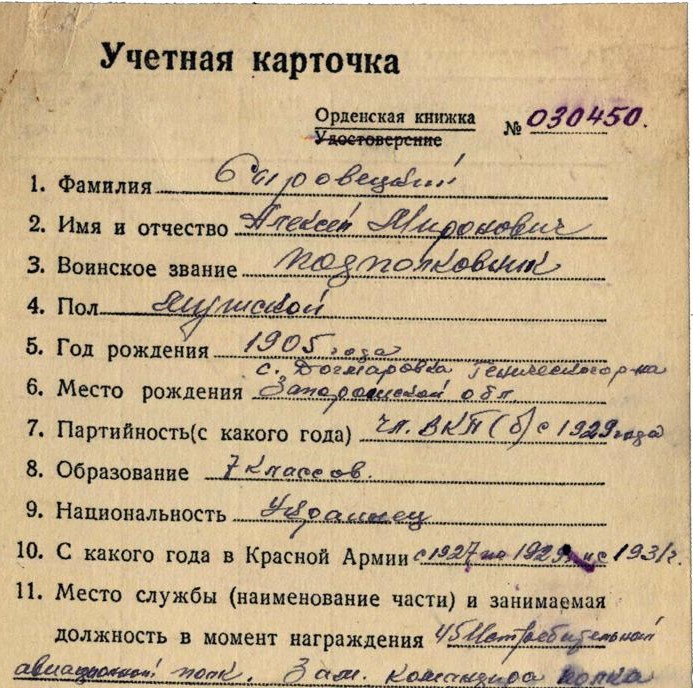 Учетная карточка
Орденская книжка
Удостоверение № 030450.
1. Фамилия Сыровецкий
2. Имя и отчество Алексей Миронович
3. Воинское звание подполковник
4. Пол мужской
5. Год рождения 1905 года
с. Догмаровка Генического р-на
6. Место рождения Запорожской обл
7. Партийность(с какого года) чл. ВКП(б) с 1929 года
8. Образование 7 классов.
9. Национальность Украинец
10. С какого года в Красной Армии с 1927 по 1929 и с 1931 г.
11. Место службы (наименование части) и занимаемая
должность в момент награждения 45 Истребительный
авиационный полк. Зам. командира полка